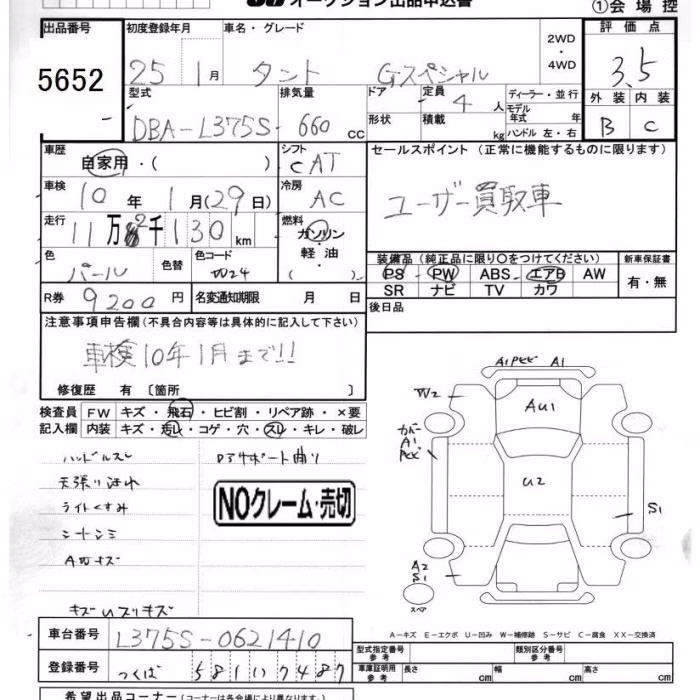 オークション出品申込書
①会場控
出品番号 5652
初度登録年月 25 1月
車名・グレード タント Gスペシャル
2WD・4WD
評価点 3.5
外装 B 内装 C
型式 DBA-L375S-
排気量 660 cc
ドア 形状
定員 4人 積載 kg
ディーラー・並行
モデル年式 年式
ハンドル 左・右
車歴 自家用・( )
シフト CAT
セールスポイント (正常に機能するものに限ります)
ユーザー買取車
車検 10年 1月(29日)
冷房 AC
走行 11万2千130km
燃料 ガソリン・軽油・( )
色 パール 色替 色コード W24
装備品 (純正品に限り○をつけてください)
PS PW ABS エアB AW
SR ナビ TV カワ
新車保証書 有・無
R券 9200円
名変通知期限 月 日
後日品
注意事項申告欄 (不具合内容等は具体的に記入して下さい)
車検10年1月まで!!
修復歴 有 〔箇所 〕
検査員記入欄
FW キズ・飛石・ヒビ割・リペア跡・×要
内装 キズ・汚レ・コゲ・穴・スレ・キレ・破レ
ハンドルスレ
天張り汚れ
ライトくすみ
シートシミ
NOクレーム・売切
A1 A1
W2
AU1
カバー A1
U2
S1
A2
S1
スペア
A-キズ E-エクボ U-凹み W-補修跡 S-サビ C-腐食 XX-交換済
車台番号 L375S-0621410
登録番号 つくば 581 い 7487
型式指定番号 参考
類別区分番号 参考
車庫証明用 参考 長さ cm 幅 cm 高さ cm
希望出品コーナー (コーナーは各会場により異なります)